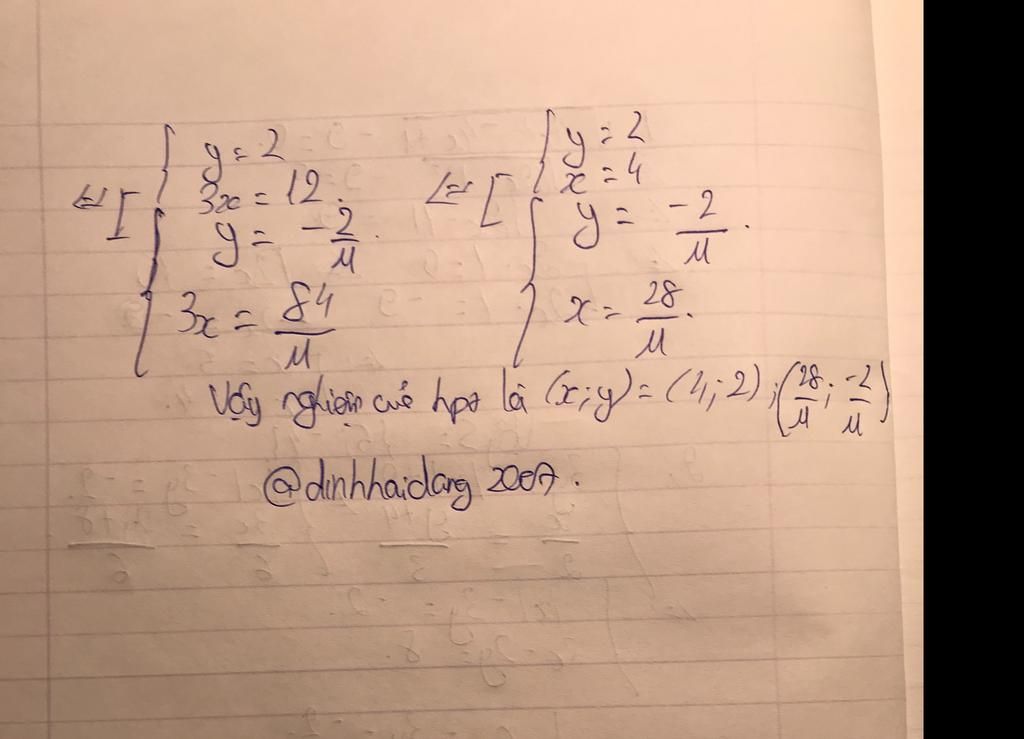 ⇔ [ { y = 2      ⇔ [ { y = 2
3x = 12.      x = 4
{ y = -2/11.      { y = -2/11.
3x = 84/11      x = 28/11.
Vậy nghiệm của hpt là (x;y) = (4;2); (28/11; -2/11)
@dinhhaidang2007.